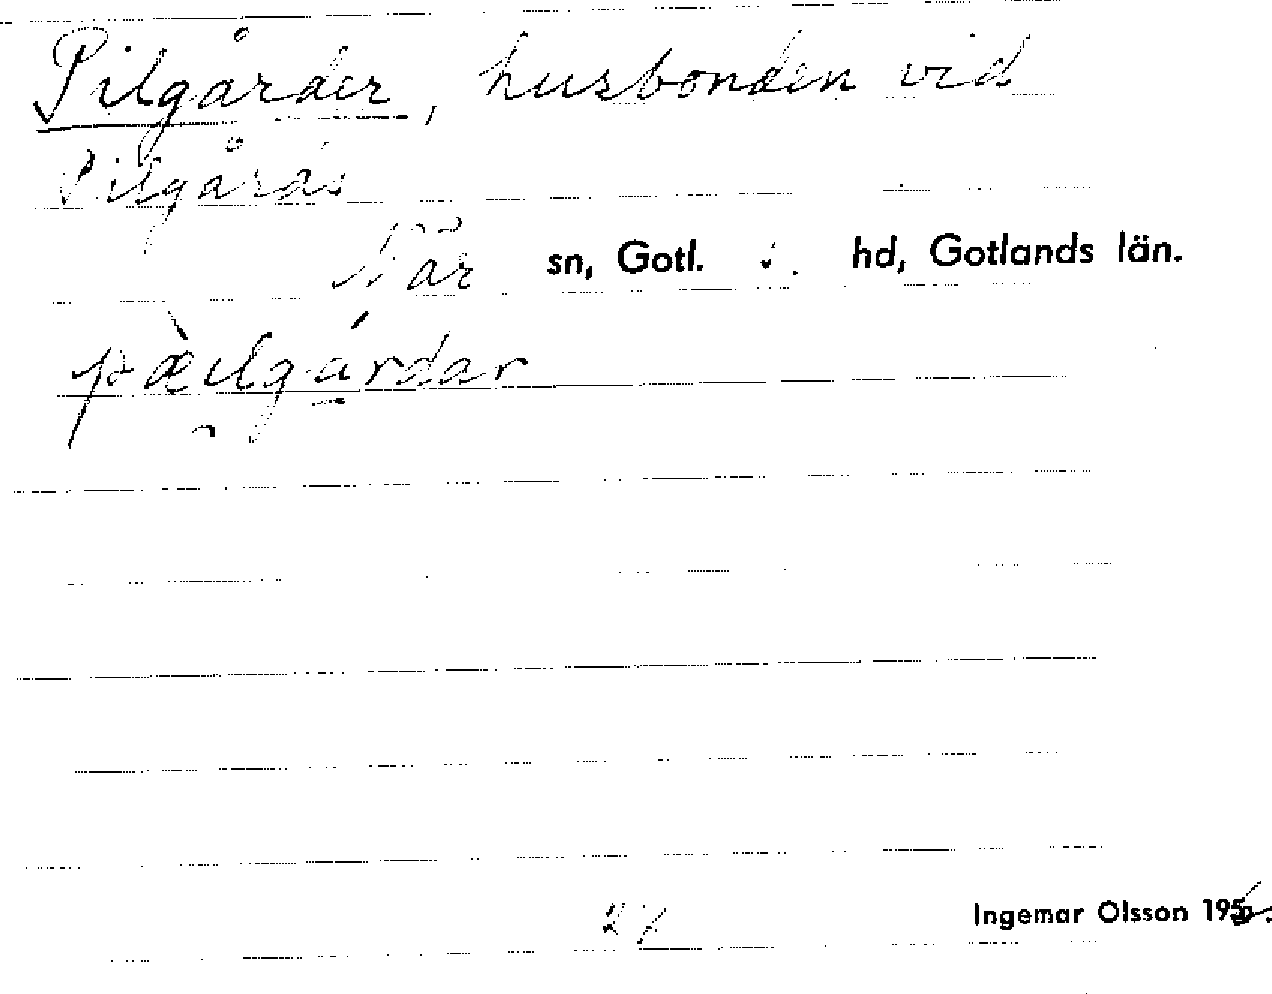 Pilgårder, husbonden vid
Pilgårds
När sn, Gotl. s. hd, Gotlands län.
pæ̀ilgárdar
Ingemar Olsson 195